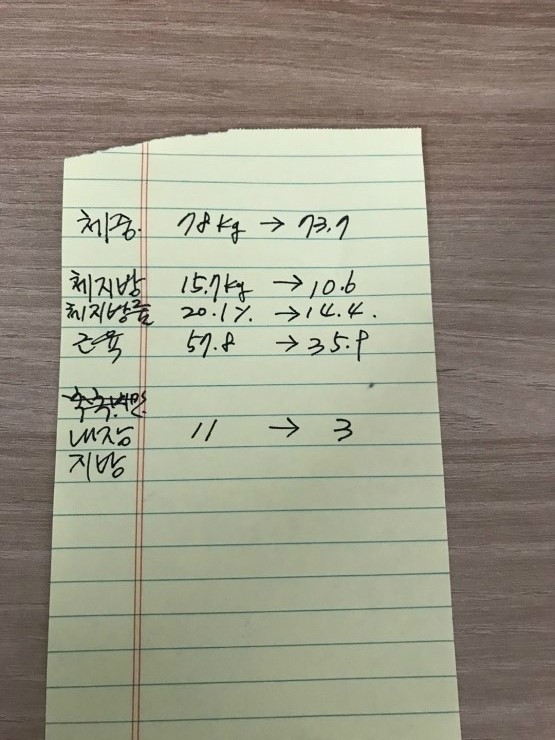 체중. 78kg → 73.7
체지방 15.7kg → 10.6
체지방률 20.1%. → 14.4.
근육 57.8 → 35.9
내장 11 → 3
지방